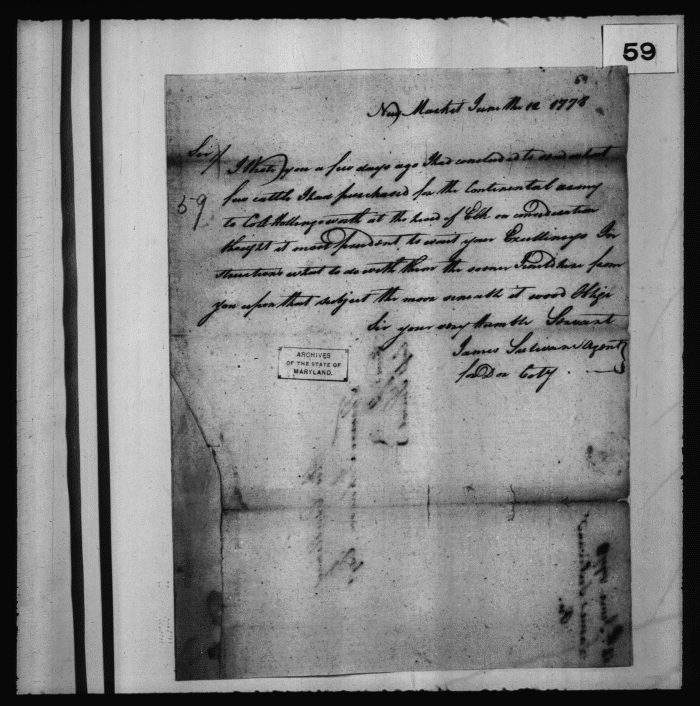 59
New Market June the 12 1778
Sir/
I Wrote you a few days ago I had concluded to send what
few cattle I had purchased for the Continental army
59
to Col Hollingsworth at the head of Elk on consideration
thought it most prudent to wait your Excellency's In
structions what to do with them the sooner I could hear from
you upon that subject the more it wood Oblige
Sir your very Humble Servant
James Sulivane Agent
for Dor Coty.
ARCHIVES
OF THE STATE OF
MARYLAND.